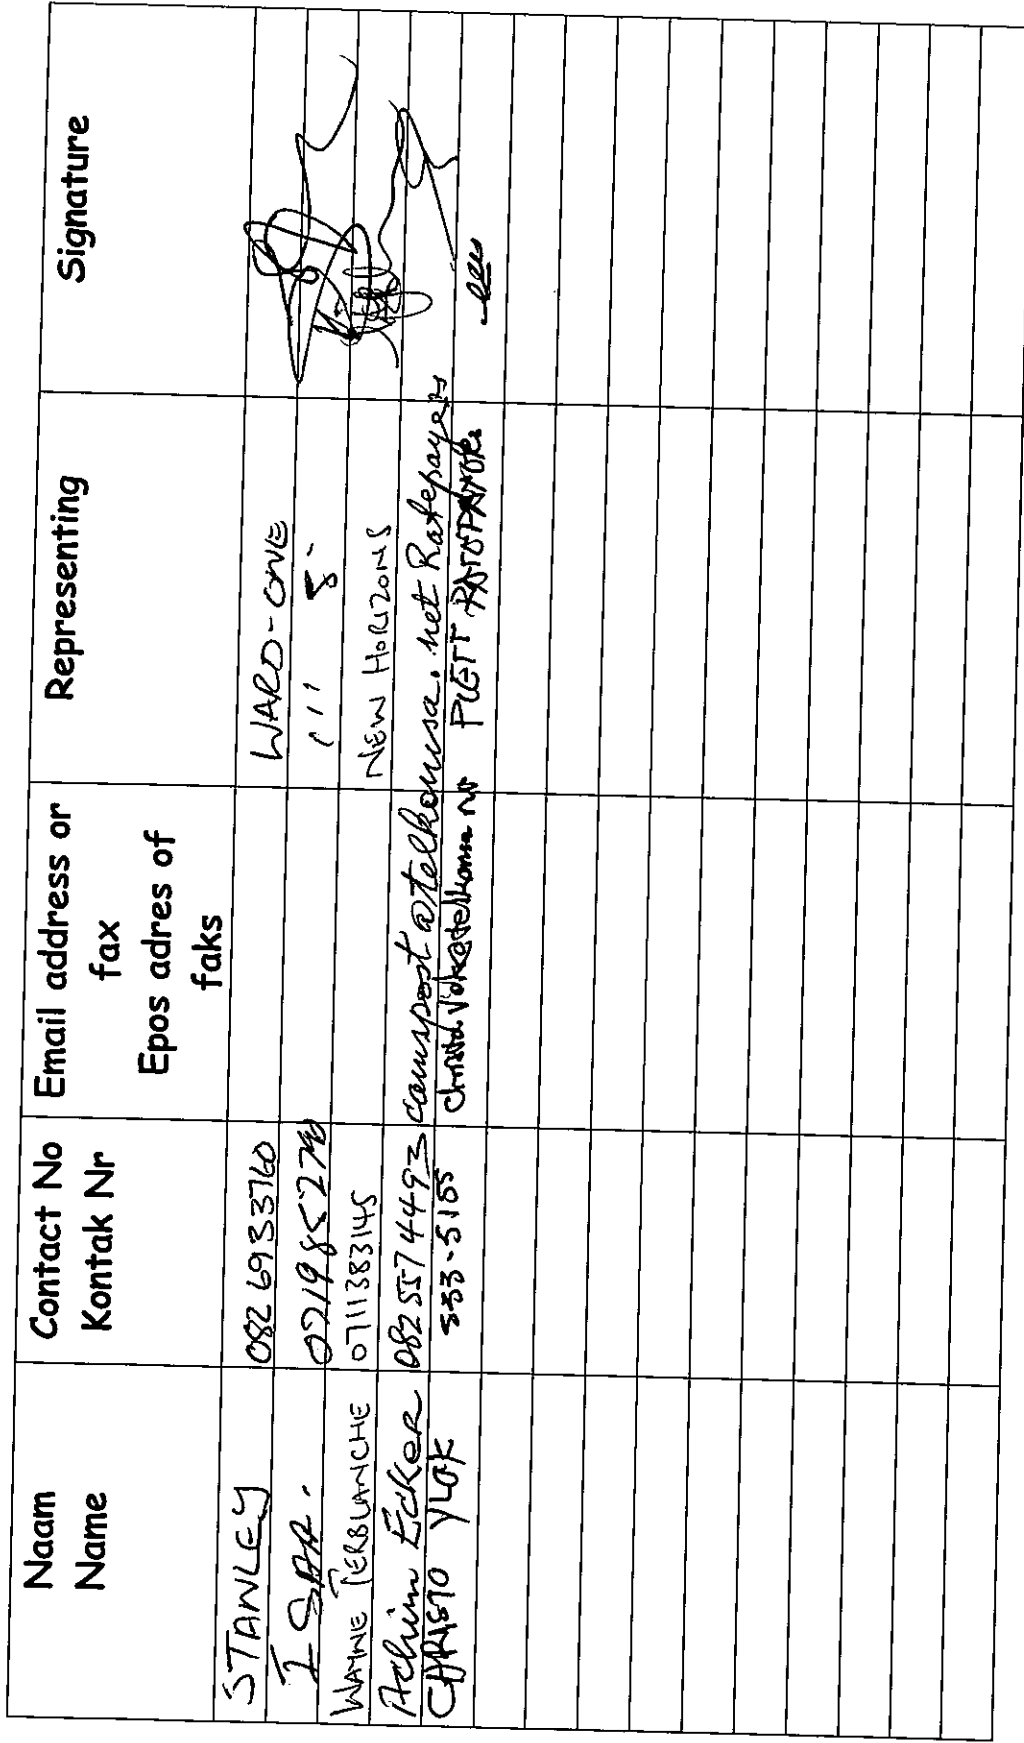 Naam
Name
Contact No
Kontak Nr
Email address or
fax
Epos adres of
faks
Representing
Signature
STANLEY 082 6933760 WARD-ONE
I SAA. " 8-
WAYNE TERBLANCHE 0711383145 NEW HORIZONS
Achim Ecker 082 557 4493 campost@telkomsa.net Ratepayers
CHRISTO VLOK 533-5155 PLETT